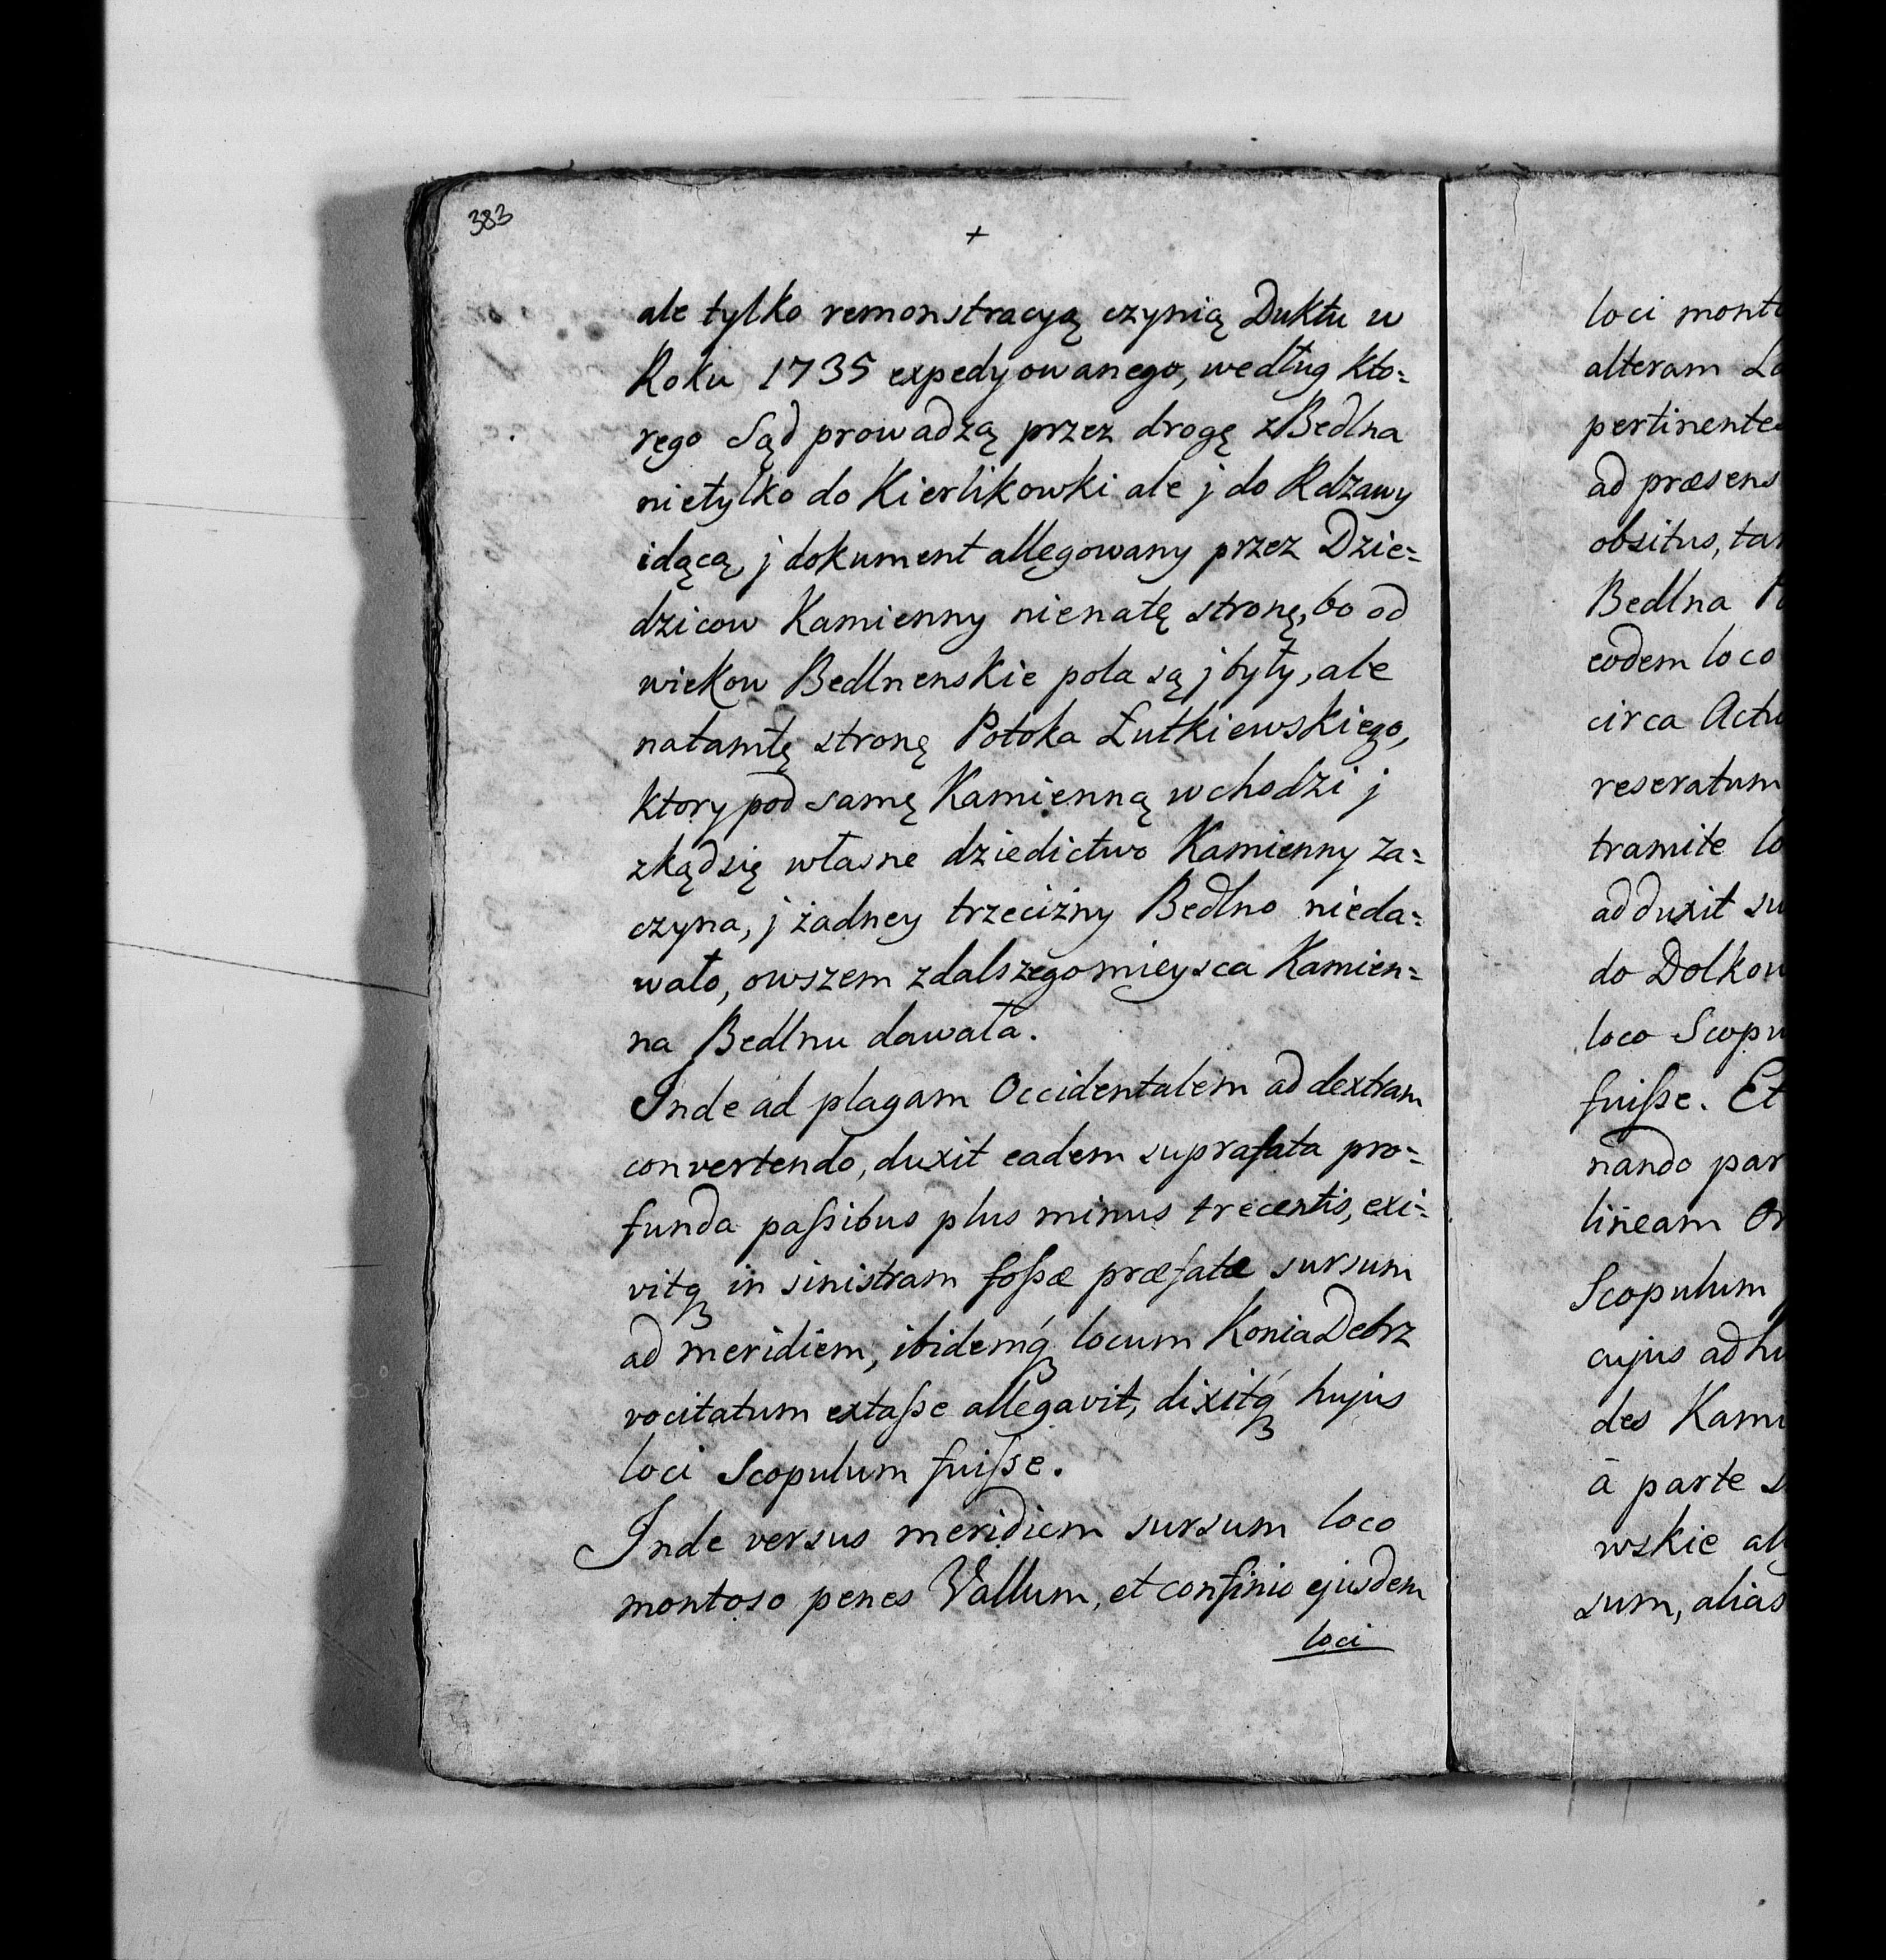 383
+
ale tylko remonstracyą czynią Duktu w
Roku 1735 expedyowanego, według kto=
ręgo Sąd prowadzą przez drogę z Bedlna
nietylko do Kierlikowki ale j do Rdzawy
idącą, j dokument allęgowany przez Dzie=
dzicow Kamienny nienatę stronę, bo od
wiekow Bedlnenskie pola są j były, ale
natamtę stronę Potoka Łutkiewskiego,
ktory pod samę Kamienną wchodzi j
zkąd się własne dziedictwo Kamienny za=
czyna, j żadney trzeciżny Bedlno nieda=
wało, owszem zdalszego mieysca Kamien=
na Bedlnu dawała.
Inde ad plagam Occidentalem ad dextram
convertendo, duxit eadem suprafata pro=
funda paſsibus plus minus trecentis, exi=
vitqꝫ in sinistram foſsæ præfatæ sursum
ad meridiem, ibidemqꝫ locum Konia Debrz
vocitatum extaſse allegavit, dixitqꝫ hujus
loci Scopulum fuiſse.
Inde versus meridiem sursum loco
montoso penes Vallum, et confinio ejusdem
loci
loci mont
alteram
pertinente
ad præsens
obsitus, ta
Bedlna
eodem loco
circa Actu
reseratum
tramite lo
adduxit su
do Dolkow
loco Scopu
fuiſse. Et
nando par
lineam Or
Scopulum
cujus adhu
des Kami
à parte
wskie al
sum, alias